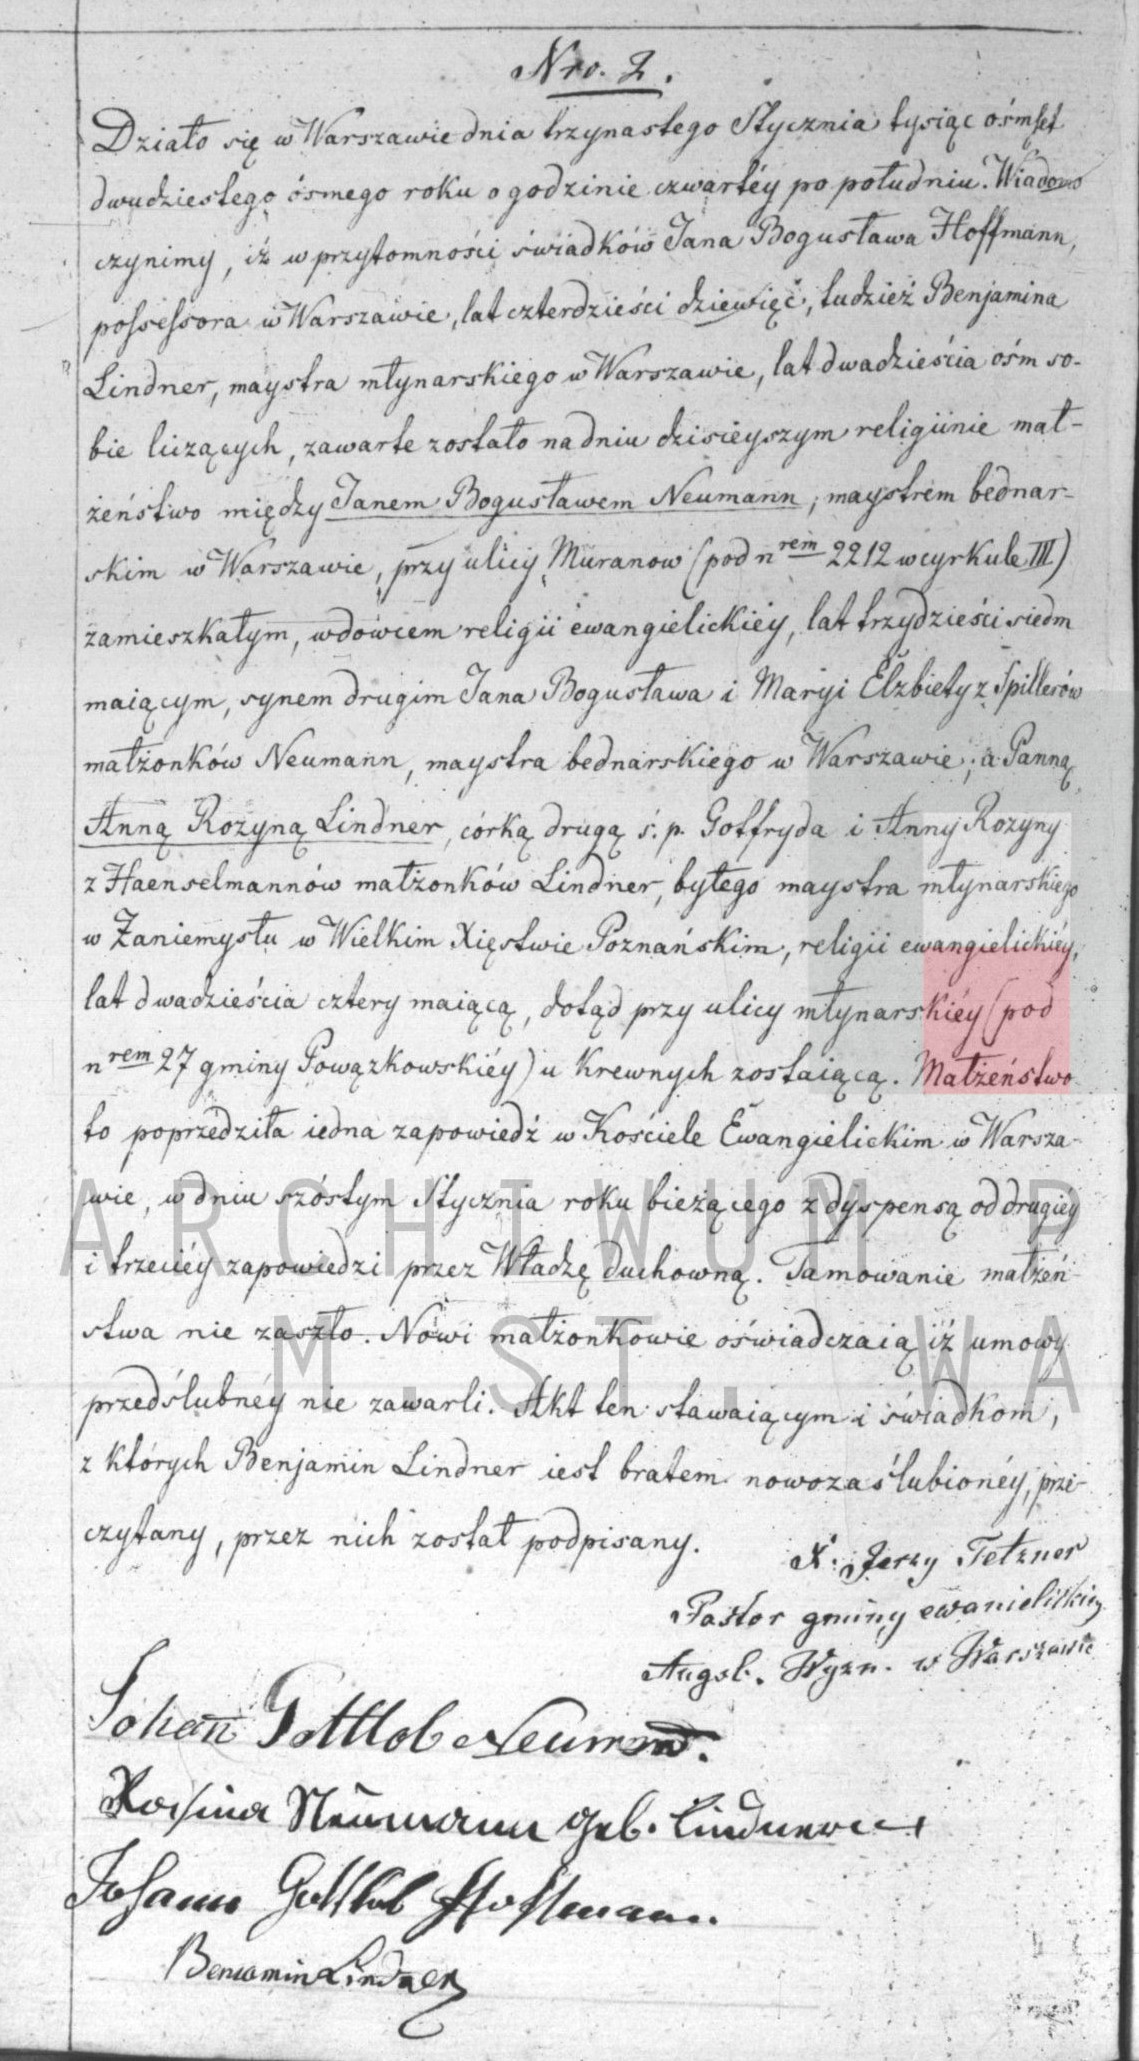 Nro. 2.
Działo się w Warszawie dnia trzynastego Stycznia tysiąc ośmset
dwudziestego ósmego roku o godzinie czwartéy po południu. Wiadomo
czynimy, iż w przytomności świadków Jana Bogusława Hoffmann,
possessora w Warszawie, lat czterdzieści dziewięć, tudzież Benjamina
Lindner, maystra młynarskiego w Warszawie, lat dwadzieścia ośm so-
bie liczących, zawarte zostało na dniu dzisieyszym religiinie mał-
żeństwo między Janem Bogusławem Neumann, maystrem bednar-
skim w Warszawie, przy ulicy Muranow (pod nrem 2212 w cyrkule III)
zamieszkałym, wdowcem religii ewangielickiéy, lat trzydzieści siedm
maiącym, synem drugim Jana Bogusława i Maryi Elżbiety z Spillerów
małżonków Neumann, maystra bednarskiego w Warszawie; a Panną
Anną Rozyną Lindner, córką drugą ś. p. Gottfryda i Anny Rozyny
z Haenselmannów małżonków Lindner, byłego maystra młynarskiego
w Zaniemyslu w Wielkim Xięstwie Poznańskim, religii ewangielickiéy,
lat dwadzieścia cztery maiącą, dotąd przy ulicy młynarskiéy (pod
nrem 27 gminy Powązkowskiéy) u Krewnych zostaiącą. Małżeństwo
to poprzedziła iedna zapowiedź w Kościele Ewangielickim w Warsza-
wie, w dniu szóstym Stycznia roku bieżącego z dyspensą od drugiéy
i trzeciéy zapowiedzi przez Władzę duchowną. Tamowanie małżeń-
stwa nie zaszło. Nowi małżonkowie oświadczaią iż umowy
przedślubnéy nie zawarli. Akt ten stawaiącym i świadkom,
z których Benjamin Lindner iest bratem nowozaślubionéy, prze-
czytany, przez nich został podpisany.
X. Jerzy Tetzner
Pastor gminy ewanielickiey
Augsb. Wyzn. w Warszawie
Johan Gottlob Neumann.
Rosina Neumann geb. Lindner
Johann Gottlob Hoffmann.
Beniamin Lindner
ARCHIWUM P
M. ST. WA